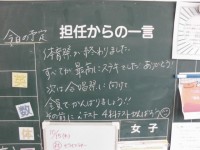 今日の予定
担任からの一言
体育祭が終わりました。
すべてが最高にステキでした!ありがとう!
次は合唱祭に向けて
全員でがんばりましょう!!
その前に、テスト 4科テストがんばろう
女子